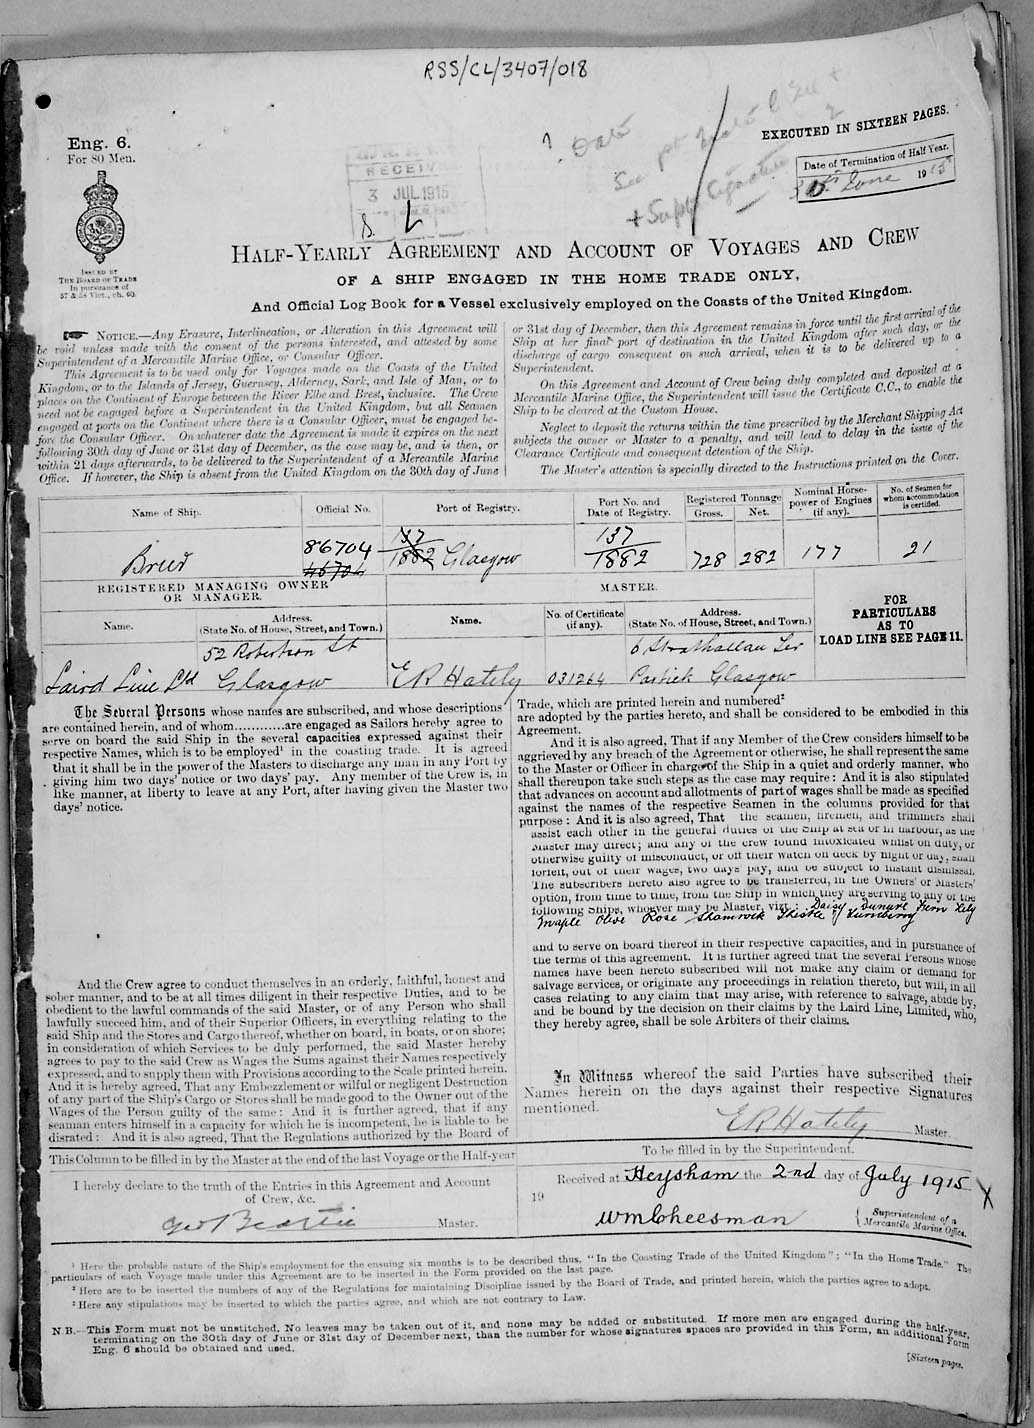 RSS/CL/3407/018
Eng. 6.
For 80 Men.
ISSUED BY
THE BOARD OF TRADE
In pursuance of
57 & 58 Vict., ch. 60.
RECEIVED
3 JUL 1915
? Date
See
+ Supt Signature
EXECUTED IN SIXTEEN PAGES.
Date of Termination of Half Year.
June 1915
HALF-YEARLY AGREEMENT AND ACCOUNT OF VOYAGES AND CREW
OF A SHIP ENGAGED IN THE HOME TRADE ONLY,
And Official Log Book for a Vessel exclusively employed on the Coasts of the United Kingdom.
NOTICE.—Any Erasure, Interlineation, or Alteration in this Agreement will
be void unless made with the consent of the persons interested, and attested by some
Superintendent of a Mercantile Marine Office, or Consular Officer.
This Agreement is to be used only for Voyages made on the Coasts of the United
Kingdom, or to the Islands of Jersey, Guernsey, Alderney, Sark, and Isle of Man, or to
places on the Continent of Europe between the River Elbe and Brest, inclusive. The Crew
need not be engaged before a Superintendent in the United Kingdom, but all Seamen
engaged at ports on the Continent where there is a Consular Officer, must be engaged be-
fore the Consular Officer. On whatever date the Agreement is made it expires on the next
following 30th day of June or 31st day of December, as the case may be, and is then, or
within 21 days afterwards, to be delivered to the Superintendent of a Mercantile Marine
Office. If however, the Ship is absent from the United Kingdom on the 30th day of June
or 31st day of December, then this Agreement remains in force until the first arrival of the
Ship at her final port of destination in the United Kingdom after such day, or the
discharge of cargo consequent on such arrival, when it is to be delivered up to a
Superintendent.
On this Agreement and Account of Crew being duly completed and deposited at a
Mercantile Marine Office, the Superintendent will issue the Certificate C.C., to enable the
Ship to be cleared at the Custom House.
Neglect to deposit the returns within the time prescribed by the Merchant Shipping Act
subjects the owner or Master to a penalty, and will lead to delay in the issue of the
Clearance Certificate and consequent detention of the Ship.
The Master's attention is specially directed to the Instructions printed on the Cover.
Name of Ship. Official No. Port of Registry. Port No. and Date of Registry. Registered Tonnage Gross. Net. Nominal Horse-power of Engines (if any). No. of Seamen for whom accommodation is certified.
86704 137/1882 Glasgow 137/1882 728 282 177 21
46704
REGISTERED MANAGING OWNER OR MANAGER.
MASTER.
FOR PARTICULARS AS TO LOAD LINE SEE PAGE 11.
Name. Address. (State No. of House, Street, and Town.) Name. No. of Certificate (if any). Address. (State No. of House, Street, and Town.)
52 Robertson St 6 Strathallan Ter
Laird Line Ltd Glasgow E R Hately 031264 Partick Glasgow
The Several Persons whose names are subscribed, and whose descriptions
are contained herein, and of whom............are engaged as Sailors hereby agree to
serve on board the said Ship in the several capacities expressed against their
respective Names, which is to be employed¹ in the coasting trade. It is agreed
that it shall be in the power of the Masters to discharge any man in any Port by
giving him two days' notice or two days' pay. Any member of the Crew is, in
like manner, at liberty to leave at any Port, after having given the Master two
days' notice.
And the Crew agree to conduct themselves in an orderly, faithful, honest and
sober manner, and to be at all times diligent in their respective Duties, and to be
obedient to the lawful commands of the said Master, or of any Person who shall
lawfully succeed him, and of their Superior Officers, in everything relating to the
said Ship and the Stores and Cargo thereof, whether on board, in boats, or on shore;
in consideration of which Services to be duly performed, the said Master hereby
agrees to pay to the said Crew as Wages the Sums against their Names respectively
expressed, and to supply them with Provisions according to the Scale printed herein.
And it is hereby agreed, That any Embezzlement or wilful or negligent Destruction
of any part of the Ship's Cargo or Stores shall be made good to the Owner out of the
Wages of the Person guilty of the same: And it is further agreed, that if any
seaman enters himself in a capacity for which he is incompetent, he is liable to be
disrated: And it is also agreed, That the Regulations authorized by the Board of
Trade, which are printed herein and numbered²
are adopted by the parties hereto, and shall be considered to be embodied in this
Agreement.
And it is also agreed, That if any Member of the Crew considers himself to be
aggrieved by any breach of the Agreement or otherwise, he shall represent the same
to the Master or Officer in charge of the Ship in a quiet and orderly manner, who
shall thereupon take such steps as the case may require: And it is also stipulated
that advances on account and allotments of part of wages shall be made as specified
against the names of the respective Seamen in the columns provided for that
purpose: And it is also agreed, That the seamen, firemen, and trimmers shall
assist each other in the general duties of the Ship at sea or in harbour, as the
Master may direct; and any of the crew found intoxicated whilst on duty, or
otherwise guilty of misconduct, or off their watch on deck by night or day, shall
forfeit, out of their wages, two days pay, and be subject to instant dismissal.
The subscribers hereto also agree to be transferred, in the Owners' or Masters'
option, from time to time, from the Ship in which they are serving to any of the
following Ships, whoever may be Master, viz.: Daisy Dunure Fern Lily
Maple Olive Rose Shamrock Thistle & Turnberry
and to serve on board thereof in their respective capacities, and in pursuance of
the terms of this agreement. It is further agreed that the several Persons whose
names have been hereto subscribed will not make any claim or demand for
salvage services, or originate any proceedings in relation thereto, but will, in all
cases relating to any claim that may arise, with reference to salvage, abide by,
and be bound by the decision on their claims by the Laird Line, Limited, who,
they hereby agree, shall be sole Arbiters of their claims.
In Witness whereof the said Parties have subscribed their
Names herein on the days against their respective Signatures
mentioned.
E R Hately Master.
This Column to be filled in by the Master at the end of the last Voyage or the Half-year
I hereby declare to the truth of the Entries in this Agreement and Account
of Crew, &c.
Geo Beattie Master.
To be filled in by the Superintendent.
Received at Heysham the 2nd day of July 1915 X
19
Wm Cheesman Superintendent of a Mercantile Marine Office.
¹ Here the probable nature of the Ship's employment for the ensuing six months is to be described thus, "In the Coasting Trade of the United Kingdom"; "In the Home Trade." The
particulars of each Voyage made under this Agreement are to be inserted in the Form provided on the last page.
² Here are to be inserted the numbers of any of the Regulations for maintaining Discipline issued by the Board of Trade, and printed herein, which the parties agree to adopt.
³ Here any stipulations may be inserted to which the parties agree, and which are not contrary to Law.
N.B.—This Form must not be unstitched. No leaves may be taken out of it, and none may be added or substituted. If more men are engaged during the half-year,
terminating on the 30th day of June or 31st day of December next, than the number for whose signatures spaces are provided in this Form, an additional Form
Eng. 6 should be obtained and used.
[Sixteen pages.